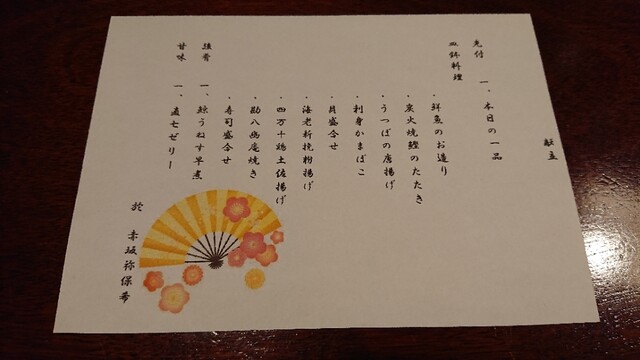 献立
先付
一、本日の一品
皿鉢料理
・鮮魚のお造り
・炭火焼鰹のたたき
・うつぼの唐揚げ
・利身かまぼこ
・貝盛合せ
・海老新挽粉揚げ
・四万十鶏土佐揚げ
・勘八幽庵焼き
・寿司盛合せ
強肴
一、鯨うねす旱煮
甘味
一、直七ゼリー
於 赤坂祢保希